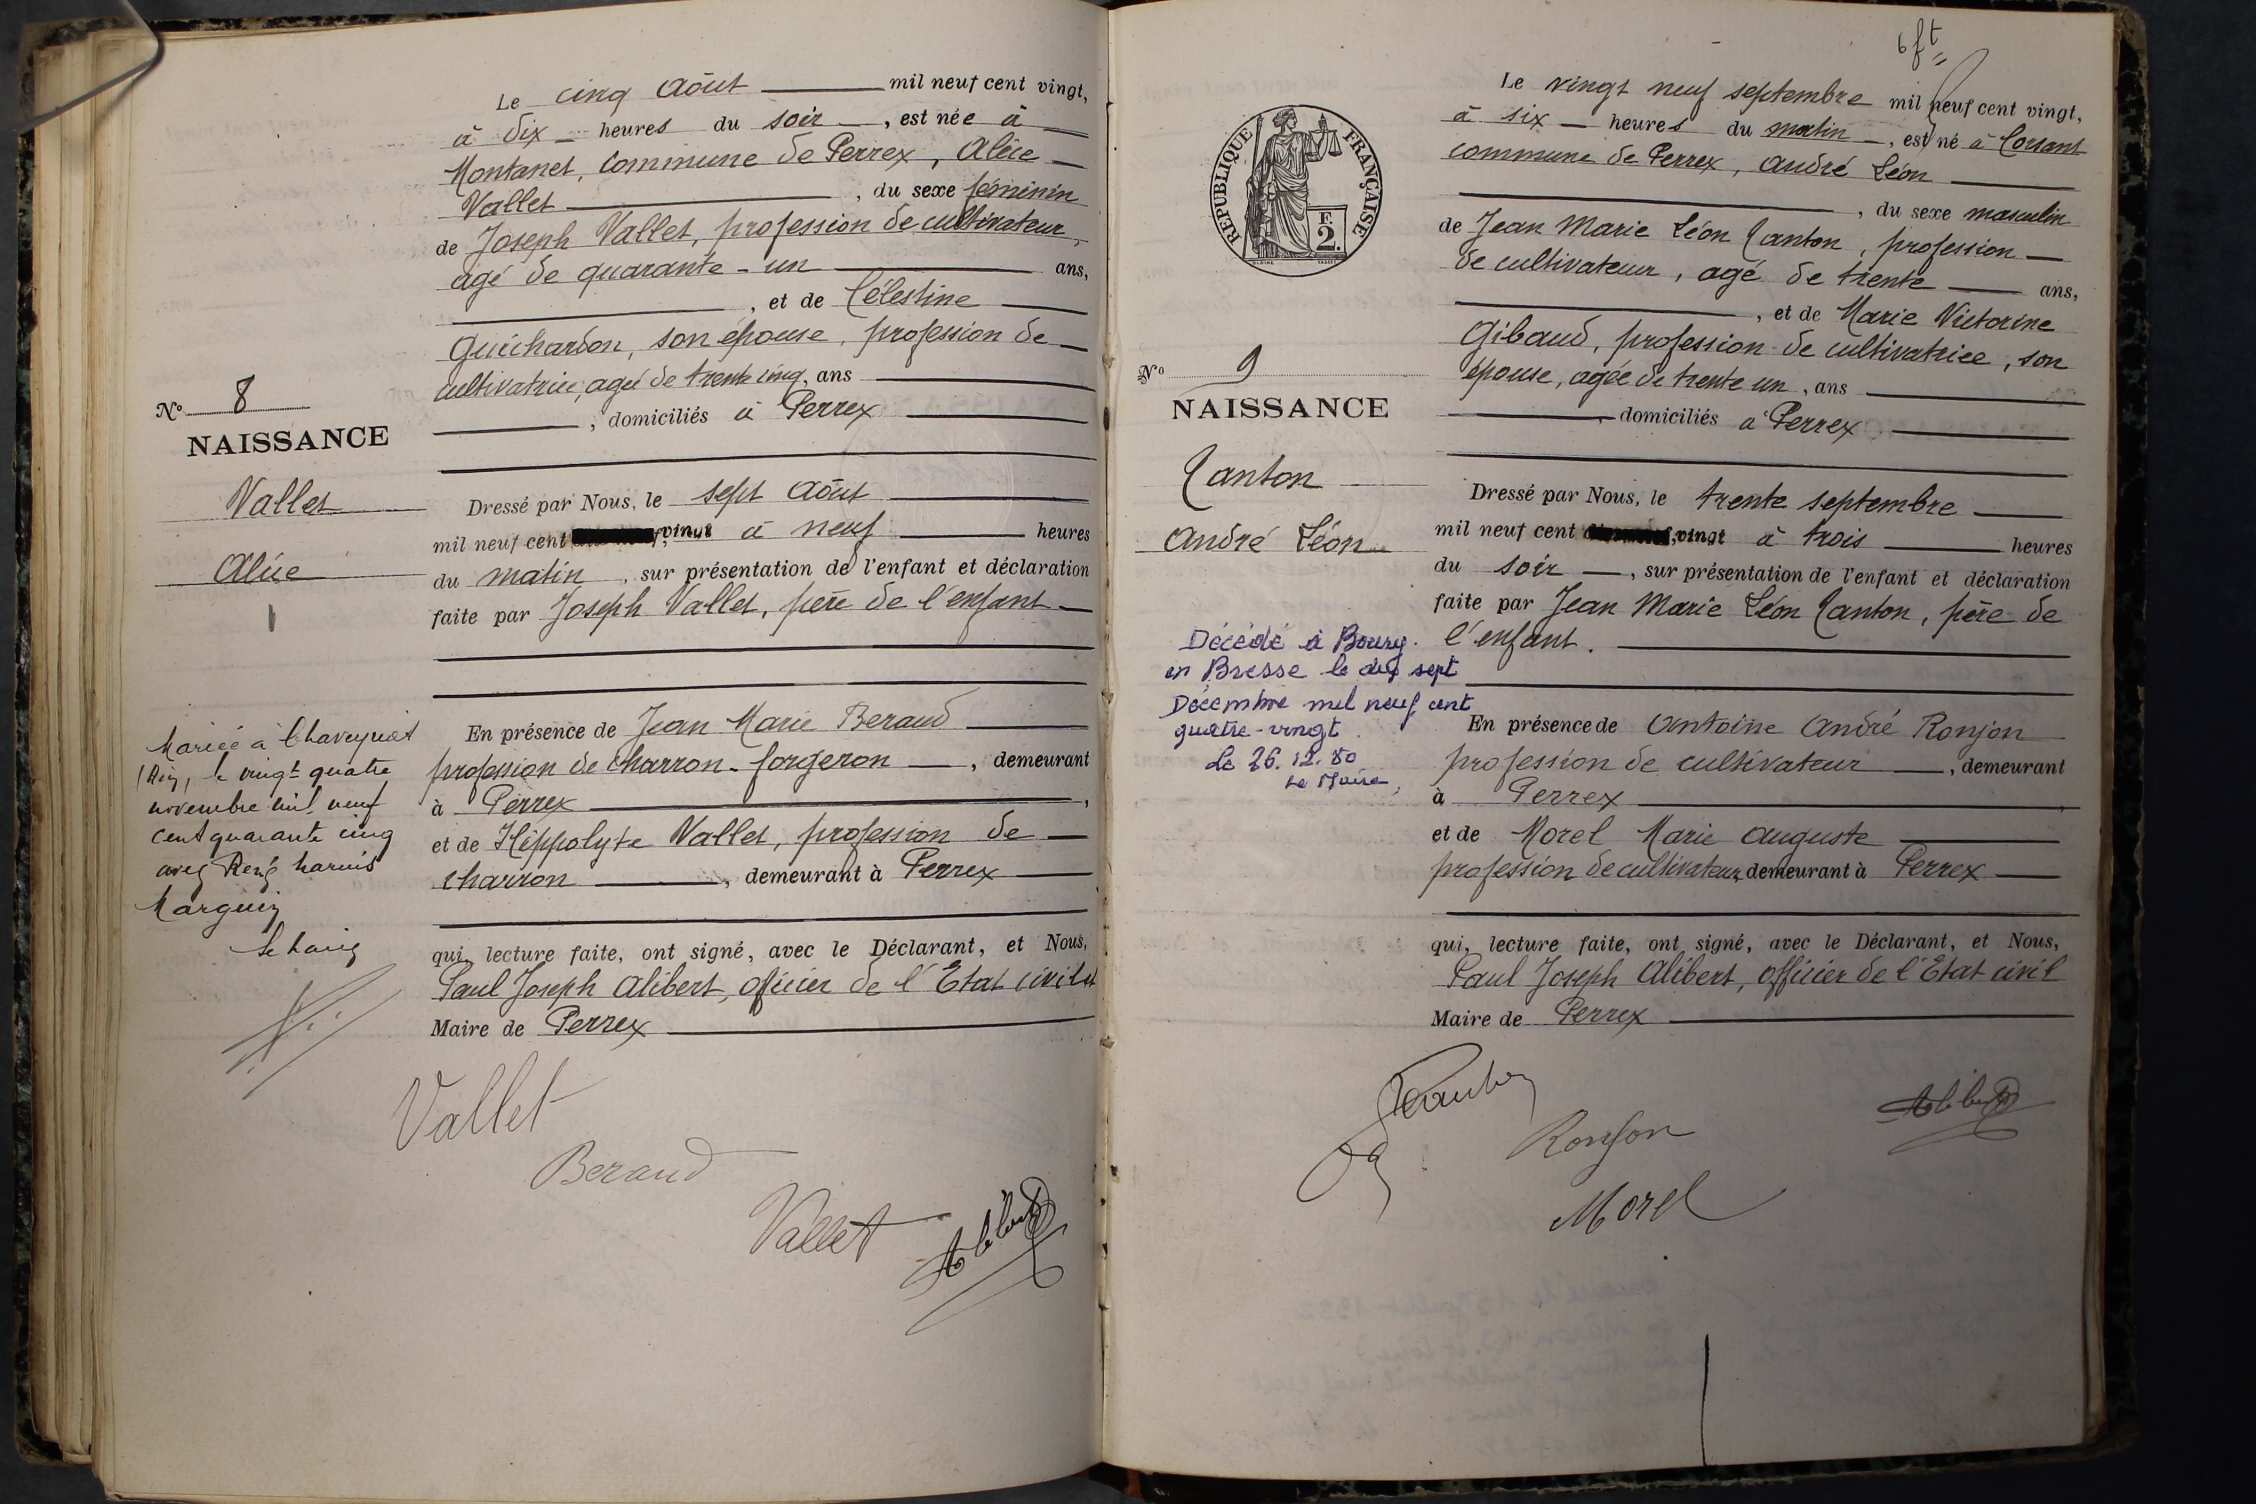 Le cinq Août mil neuf cent vingt,
à dix heures du soir, est née à
Montanet, commune de Perrex, Alice
Vallet, du sexe féminin
de Joseph Vallet, profession de cultivateur,
agé de quarante-un ans,
, et de Célestine
Guichardon, son épouse, profession de
cultivatrice, agée de trente cinq, ans
, domiciliés à Perrex
Nº 8
NAISSANCE
Vallet
Alice
Dressé par Nous, le sept Août
mil neuf cent vingt à neuf heures
du matin, sur présentation de l'enfant et déclaration
faite par Joseph Vallet, père de l'enfant
Mariée à Chaveyriat
(Ain), le vingt quatre
novembre mil neuf
cent quarante cinq
avec René
Marguin
Le Maire
En présence de Jean Marie Beraud
profession de charron-forgeron, demeurant
à Perrex,
et de Hippolyte Vallet, profession de
charron, demeurant à Perrex
qui, lecture faite, ont signé, avec le Déclarant, et Nous,
Paul Joseph Alibert, officier de l'Etat civil et
Maire de Perrex
Vallet
Beraud
Vallet
Alibert
6 ft
REPUBLIQUE FRANÇAISE
F.
2.
Le vingt neuf septembre mil neuf cent vingt,
à six heures du matin, est né à Corsant
commune de Perrex, André Léon
, du sexe masculin
de Jean Marie Léon Canton, profession
de cultivateur, agé de trente ans,
, et de Marie Victorine
Gibaud, profession de cultivatrice, son
épouse, agée de trente un, ans
, domiciliés à Perrex
Nº 9
NAISSANCE
Canton
André Léon
Dressé par Nous, le trente septembre
mil neuf cent vingt à trois heures
du soir, sur présentation de l'enfant et déclaration
faite par Jean Marie Léon Canton, père de
l'enfant.
Décédé à Bourg-
en Bresse le dix sept
Décembre mil neuf cent
quatre-vingt
Le 26.12.80
Le Maire,
En présence de Antoine André Ronjon
profession de cultivateur, demeurant
à Perrex
et de Morel Marie Auguste
profession de cultivateur, demeurant à Perrex
qui, lecture faite, ont signé, avec le Déclarant, et Nous,
Paul Joseph Alibert, officier de l'Etat civil
Maire de Perrex
Canton
Ronjon
Alibert
Morel